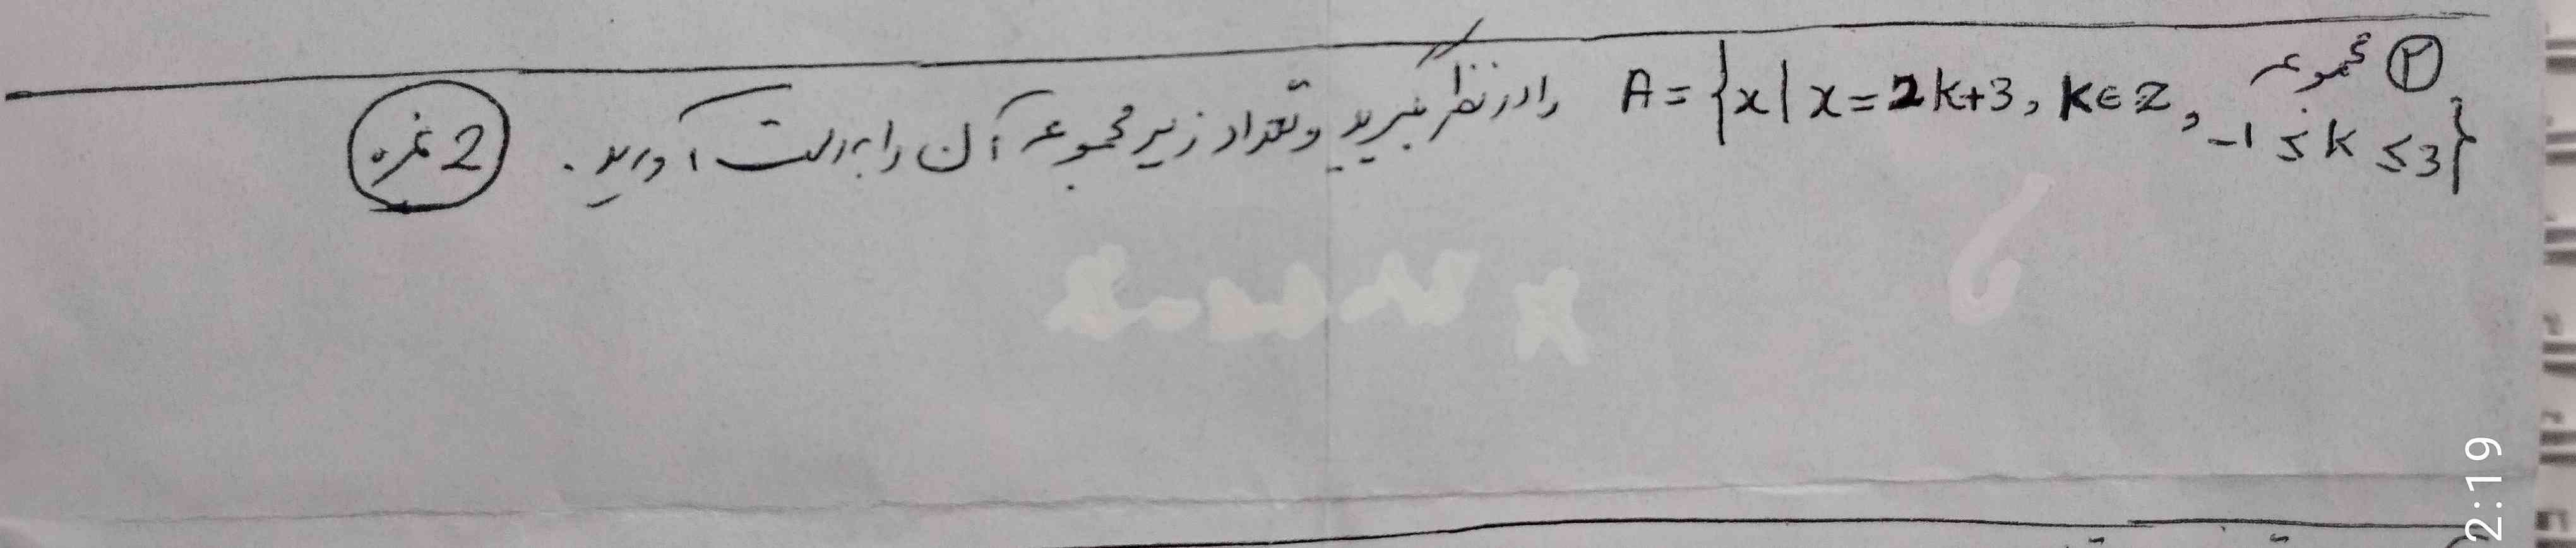 ② مجموعه A = {x | x = 2k+3, k ∈ Z, -1 ≤ k ≤ 3} را در نظر بگیرید
و تعداد زیر مجموعه آن را بدست آورید. 2 نمره
2:19